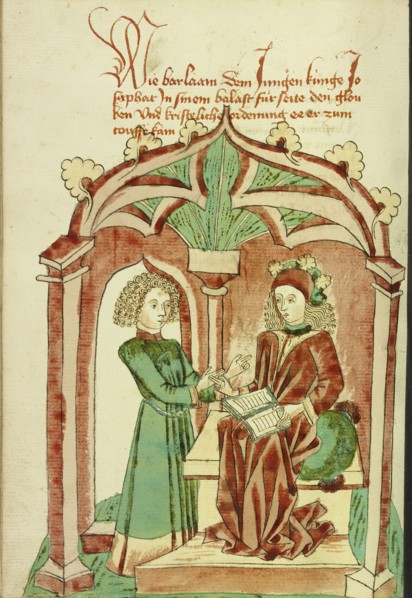 Wie barlaam dem Jungen kunge Jo
saphat Jn sinom balast für seite den glou
ben Vnd kristeliche ordenung ee er zum
touffe kam